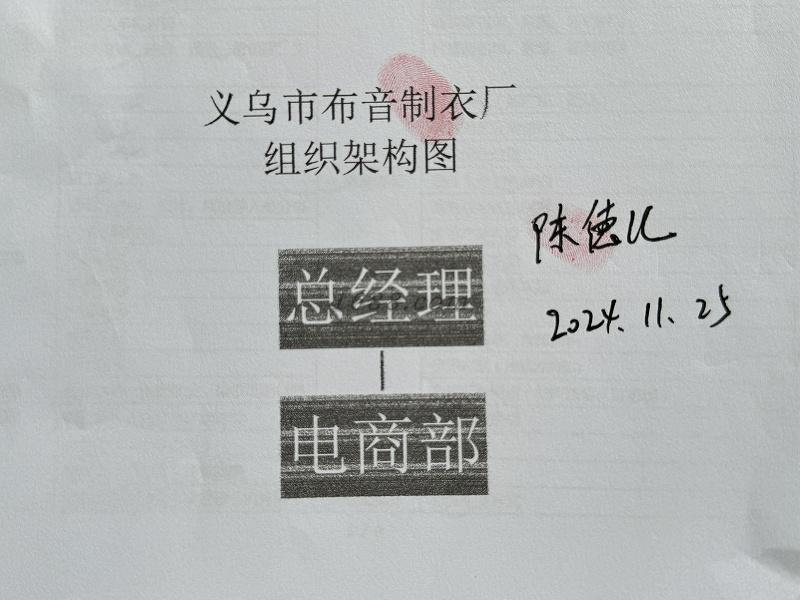 义乌市布音制衣厂
组织架构图
陈德
2024.11.25
总经理
电商部